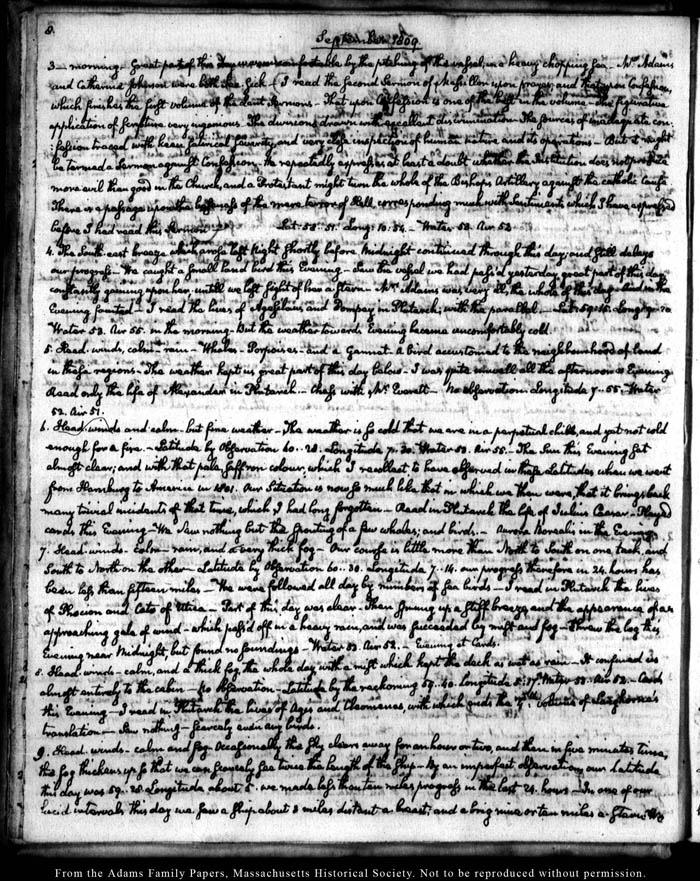 8.
September 1809.
3 — morning. Great part of this day uncomfortable by the pitching of the vessel, in a heavy chopping sea — Mrs Adams
and Catherine Johnson were both sea sick. I read the second Sermon of Massillon upon prayer; and that upon Confession,
which finishes the first volume of the Lent Sermons — That upon Confession is one of the best in the volume — The figurative
application of Scripture very ingenious. The divisions drawn with excellent discrimination. The sources of inadequate con-
:fession traced with keen satirical severity, and very close inspection of human nature and its operations — But it might
be termed a Sermon against Confession. He repeatedly expresses at least a doubt whether the Institution does not produce
more evil than good in the Church, and a Protestant might turn the whole of the Bishops Artillery against the catholic cause
There is a passage upon the baseness of the mere terror of Hell, corresponding much with sentiments which I have expressed
before I had read this Sermon — Lat: 58. 51. Long: 10. 34. — Water 52. Air 52
4. The South-east breeze which arose last Night shortly before Midnight continued through this day; and still delays
our progress — We caught a small land bird this Evening — Saw the vessel we had pass'd yesterday great part of this day,
constantly gaining upon her, untill we lost sight of her a stern — Mrs Adams was very ill the whole of this day. And in the
Evening fainted — I read the lives of Agesilaus and Pompey in Plutarch, with the parallel. — Lat: 59. 15. Long:
Water 53. Air 55. in the morning — But the weather towards Evening became uncomfortably cold.
5. Head-winds, calm — rain — Whales — Porpoises — and a Gannet. A bird accustomed to the neighbourhood of land
in these regions — The weather kept us great part of this day below — I was quite unwell all the afternoon & Evening
Read only the life of Alexander in Plutarch — Chess with Mr Everett — No observation. Longitude 7. 55. Water
52. Air 51.
6. Head-winds and calm, but fine weather — The weather is so cold that we are in a perpetual chill, and yet not cold
enough for a fire. — Latitude by Observation 60. 28. Longitude 7. 30. Water 53. Air 55. — The Sun this Evening set
almost clear; and with that pale, saffron colour, which I recollect to have observed in these Latitudes, when we went
from Hamburg to America in 1801. Our Situation is now so much like that in which we then were, that it brings back
many trivial incidents of that time, which I had long forgotten — Read in Plutarch the life of Julius Caesar — Played
cards this Evening — We saw nothing but the spouting of a few whales; and birds. — Aurora Borealis in the Evening.
7. Head-winds — Calm — rain, and a very thick fog — Our course is little more than North to South on one tack, and
South to North on the other — Latitude by Observation 60. 30. Longitude 7. 14. our progress therefore in 24 hours has
been less than fifteen miles — We were followed all day by numbers of sea birds — I read in Plutarch the lives
of Phocion and Cato of Utica — Part of this day was clear — Then sprung up a stiff breeze, and the appearance of an
approaching gale of wind — which pass'd off in a heavy rain, and was succeeded by mist and fog — Threw the log this
Evening near Midnight, but found no soundings — Water 53. Air 52. — Evening at Cards.
8. Head-winds — calm, and a thick fog the whole day with a mist which kept the deck as wet as rain — It confined us
almost entirely to the cabin — No Observation — Latitude by the reckoning 59. 40. Longitude 5. 37. Water 53. Air 52. — Cards
this Evening — I read in Plutarch the lives of Agis and Cleomenes, with which ends the volume of Langhorne's
translation — Saw nothing — Scarcely even any birds.
9. Head-winds — calm and fog. Occasionally the sky clears away for an hour or two, and then in five minutes time,
the fog thickens up so that we can scarcely see twice the length of the ship — By an imperfect observation, our latitude
this day was 59. 25. Longitude about 5. we made less than ten miles progress in the last 24 hours — In one of our
lucid intervals this day we saw a ship about 8 miles distant a head; and a brig nine or ten miles a-stern. We
From the Adams Family Papers, Massachusetts Historical Society. Not to be reproduced without permission.